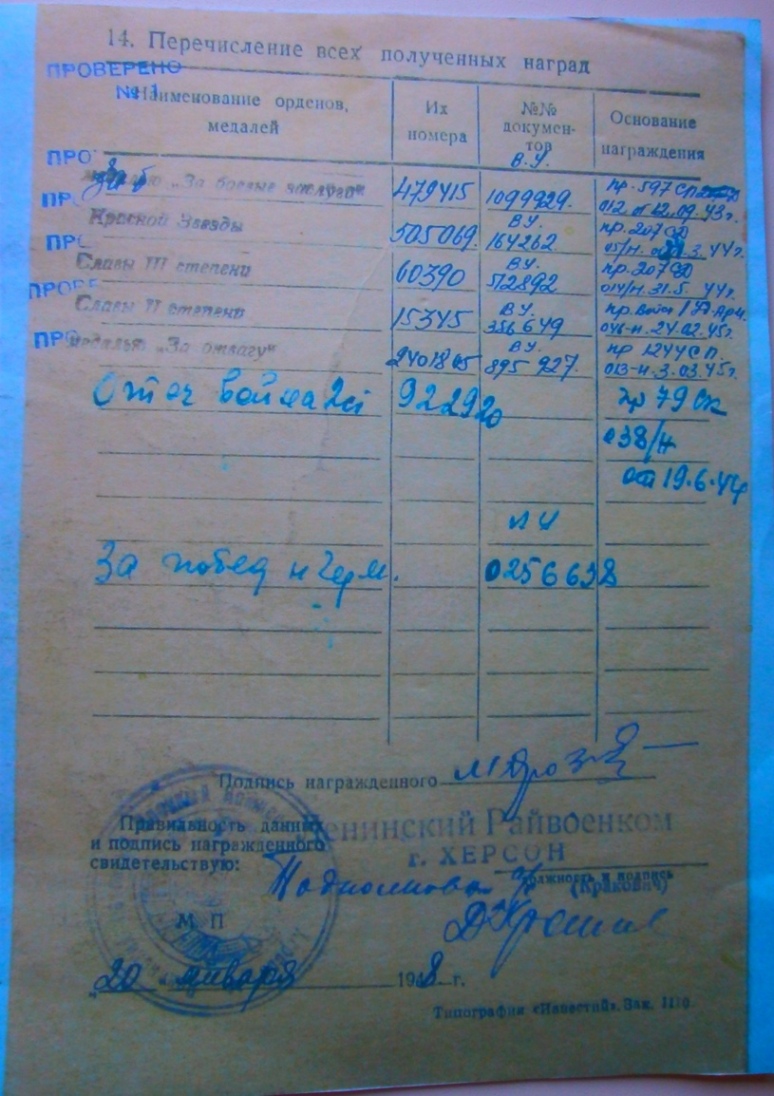 14. Перечисление всех полученных наград
ПРОВЕРЕНО
№ 1
Наименование орденов, медалей
Их номера
№№ документов
Основание награждения
ПРО
медалью „За боевые заслуги“ 479415 В.У. 1099929 пр. 597 СП
012 от 12.09.43г.
ПРО
Красной Звезды 505069 ВУ. 164262 пр. 207 СД
05/н. 3.44г.
ПРО
Славы III степени 60390 ВУ. 512892 пр. 207 СД
014/н. 31.5 44г.
ПРОВЕ
Славы II степени 15345 ВУ. 356649 пр. Войск 1 Уд. Арм.
046-н. 24.02.45г.
ПРО
медалью „За отвагу“ 2401805 ВУ. 895927. пр 1244 СП.
013-н. 3.03.45г.
Отеч война 2ст 922920 пр 79 ск
038/н
от 19.6.44
ЛН
За побед н Герм. 0256638
Подпись награжденного
Правильность данных
и подпись награжденного
свидетельствую:
Ленинский Райвоенком
г. ХЕРСОН
должность и подпись
(Кракович)
М П
„20 января 1948 г.
Типография «Известий». Зак.